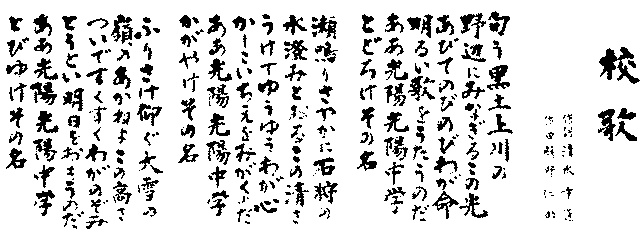 校歌
匂う黒土上川の
野辺にみなぎるこの光
あびてのびのびわが命
明るい歌をうたうのだ
ああ光陽光陽中学
とどろけその名
瀬鳴りさやかに石狩の
水澄みとおるこの清さ
うけてゆうゆうわが心
かしこいちえをみがくのだ
ああ光陽光陽中学
かがやけその名
ふりさけ仰ぐ大雪の
嶺のあかねよこの高さ
ついですくすくわがのぞみ
とうとい明日をおもうのだ
ああ光陽光陽中学
とびゆけその名